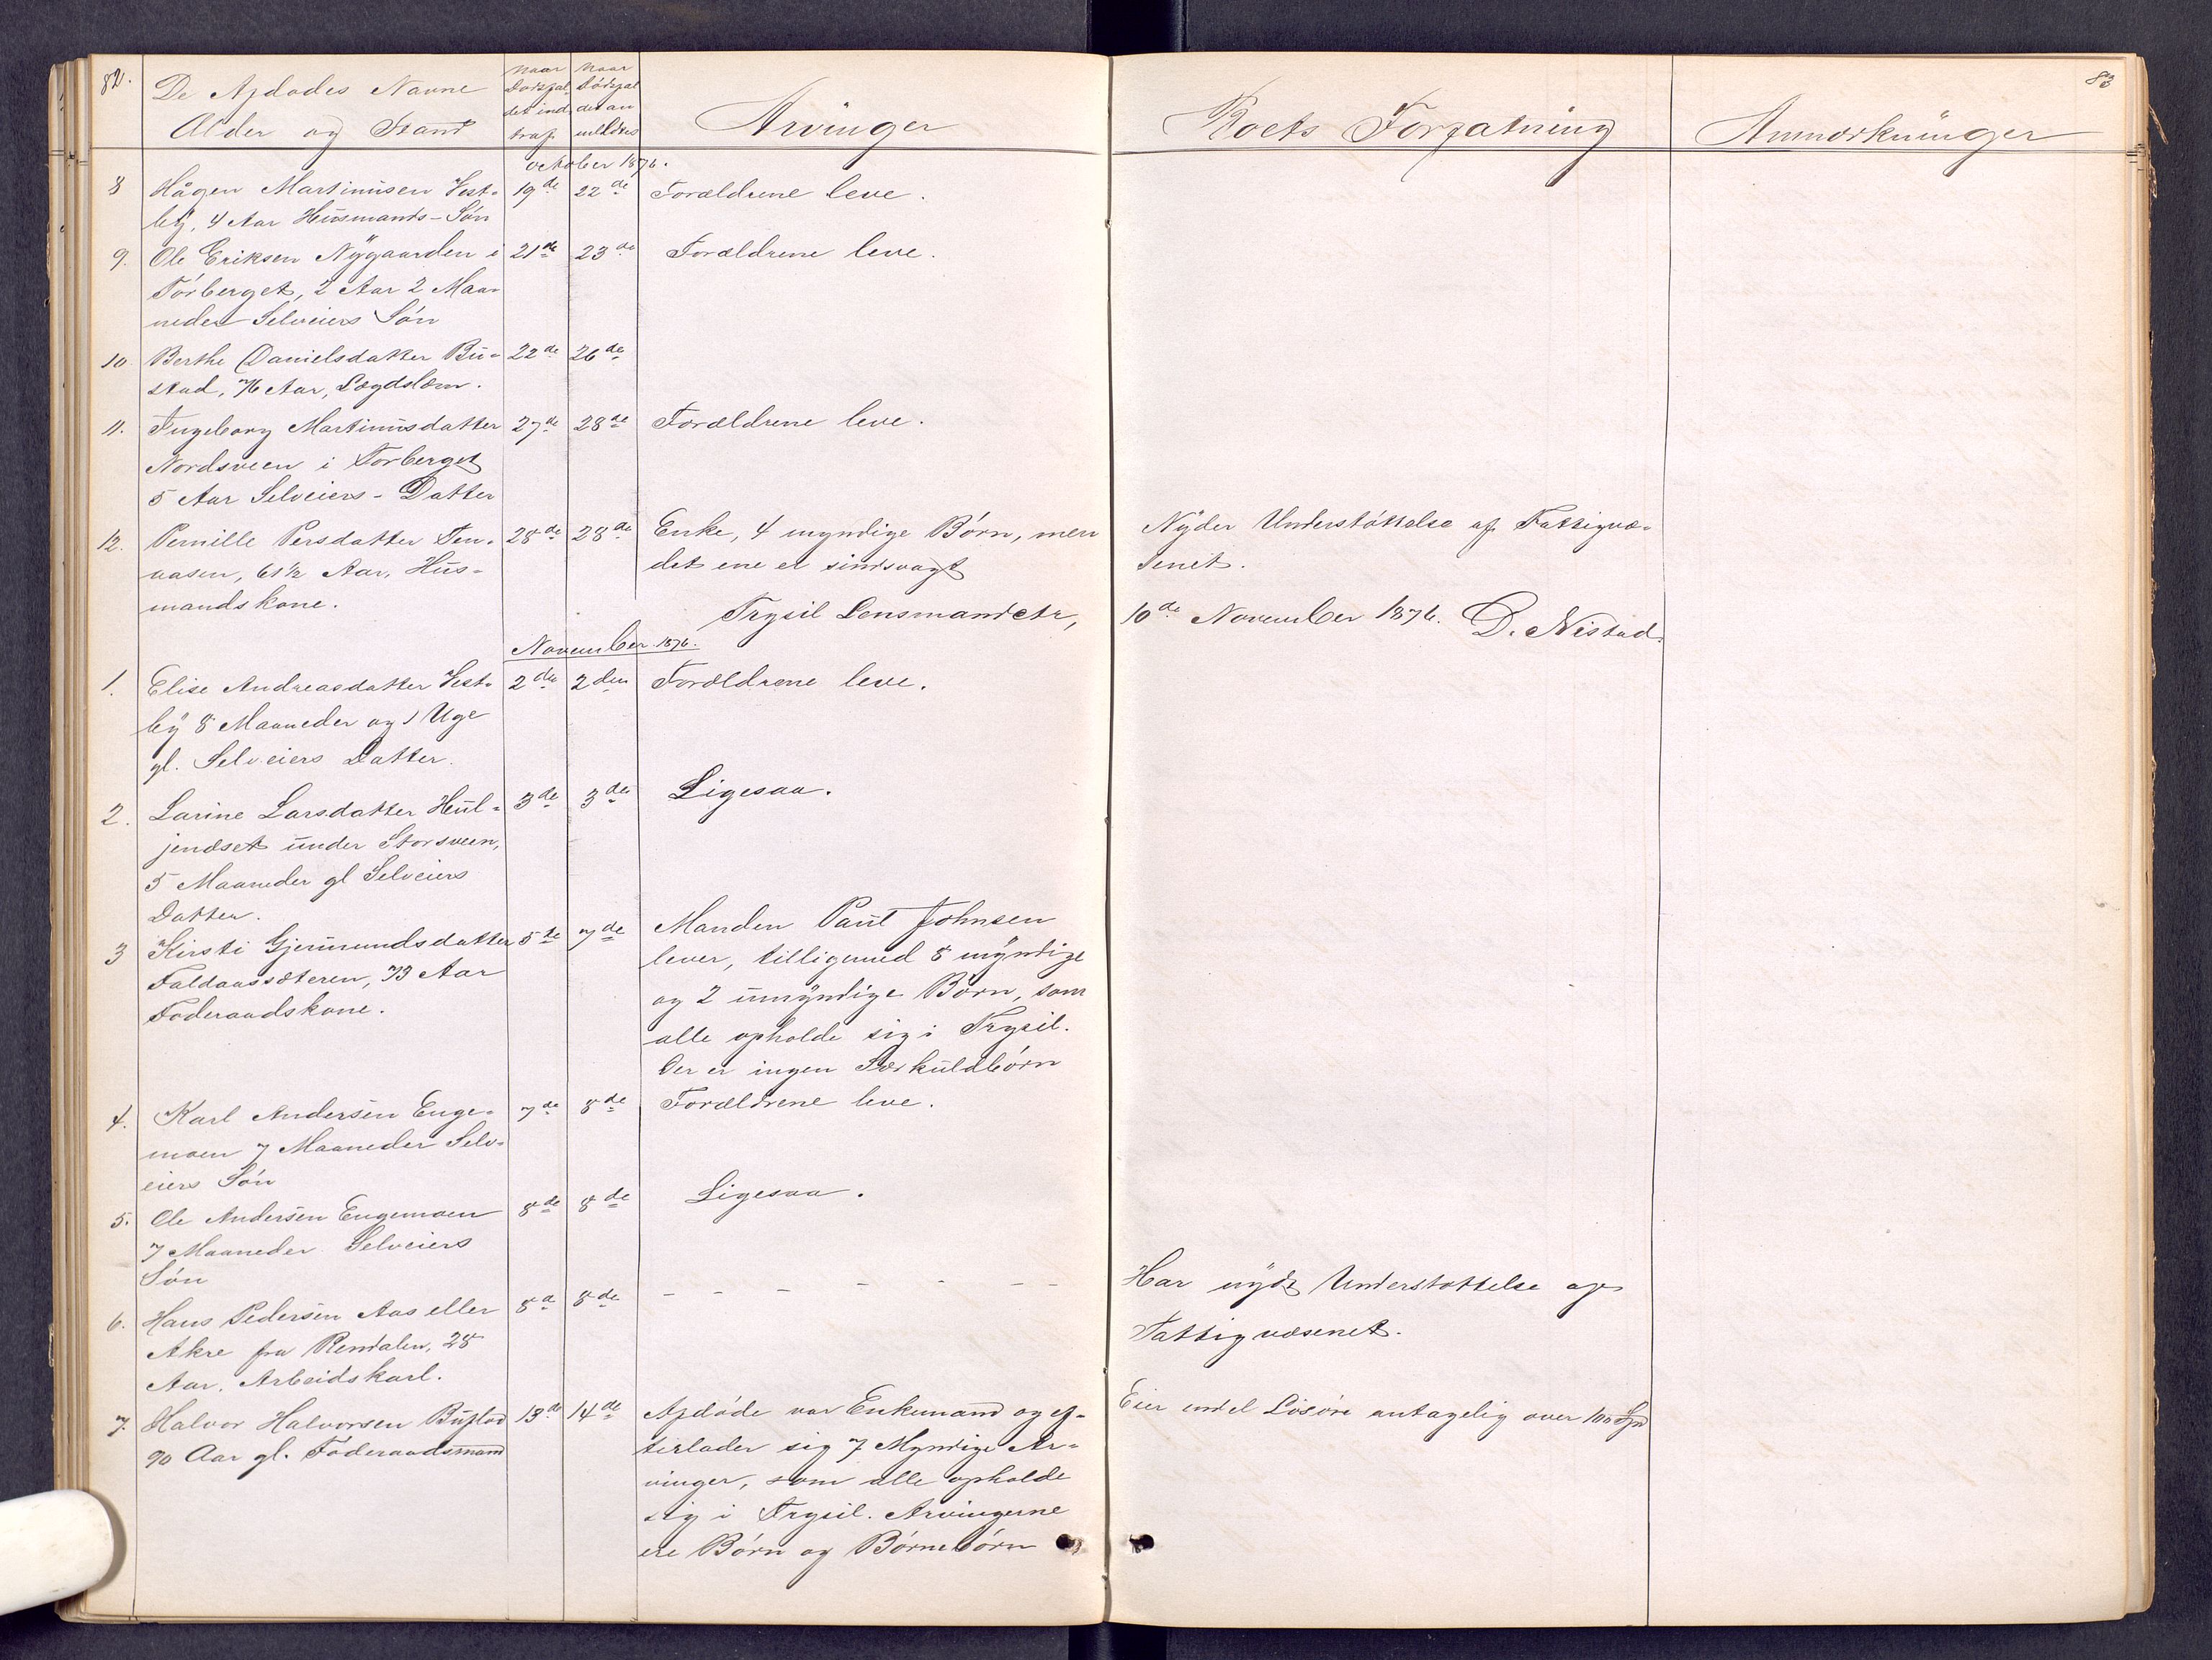 82.
De Afdødes Navne
Alder og Stand
Naar
Dødsfal-
det ind
traf
Naar
Dødsfal
det an
meldtes
Arvinger
Boets Forfatning
Anmærkninger
83
October 1876.
8 Hågen Martinusen Vest- 19de 22de Forældrene leve.
by, 4 Aar Husmands-Søn
9. Ole Eriksen Nygaarden i 21de 23de Forældrene leve.
Tørberget, 2 Aar 2 Maa-
neder Selveiers Søn
10. Berthe Danielsdatter Bu- 22de 26de
stad, 76 Aar, Lægdslem.
11. Ingeborg Martinusdatter 27de 28de Forældrene leve.
Nordsveen i Tørberget
5 Aar Selveiers-Datter
12. Pernille Persdatter Ten- 28de 28de Enke, 4 myndige Børn, men Nyder Understøttelse af Fattigvæ-
aasen, 61½ Aar, Hus- det ene er sindsvagt senet.
mandskone.
Trysil Lensmandetr, 10de November 1876. D. Nistad.
November 1876.
1. Elise Andreasdatter Vest- 2den 2den Forældrene leve.
by 8 Maaneder og 1 Uge
gl. Selveiers Datter.
2. Larine Larsdatter Hul- 3de 3de Ligesaa.
jendset under Storsveen,
5 Maaneder gl Selveiers
Datter.
3 Kirsti Gjermundsdatter 5te 7de Manden Paul Johnsen
Faldaassæteren, 73 Aar lever, tilligemed 8 myndige
Føderaadskone. og 2 umyndige Børn, som
alle opholde sig i Trysil.
Der er ingen Særkuldbørn
4. Karl Andersen Enge- 7de 8de Forældrene leve.
moen 7 Maaneder Selv-
eiers Søn
5. Ole Andersen Engemoen 8de 8de Ligesaa.
7 Maaneder Selveiers
Søn
6. Hans Pedersen Aas eller 8d 8de - - - - - - - Har nydt Understøttelse af
Akre fra Rendalen, 28 Fattigvæsenet.
Aar. Arbeidskarl.
7. Halvor Halvorsen Bustad 13de 14de Afdøde var Enkemand og ef- Eier endel Løsøre antagelig over 100 Spd
90 Aar gl. Føderaadsmand terlader sig 7 Myndige Ar-
vinger, som alle opholde
sig i Trysil. Arvingerne
ere Børn og Børnebørn